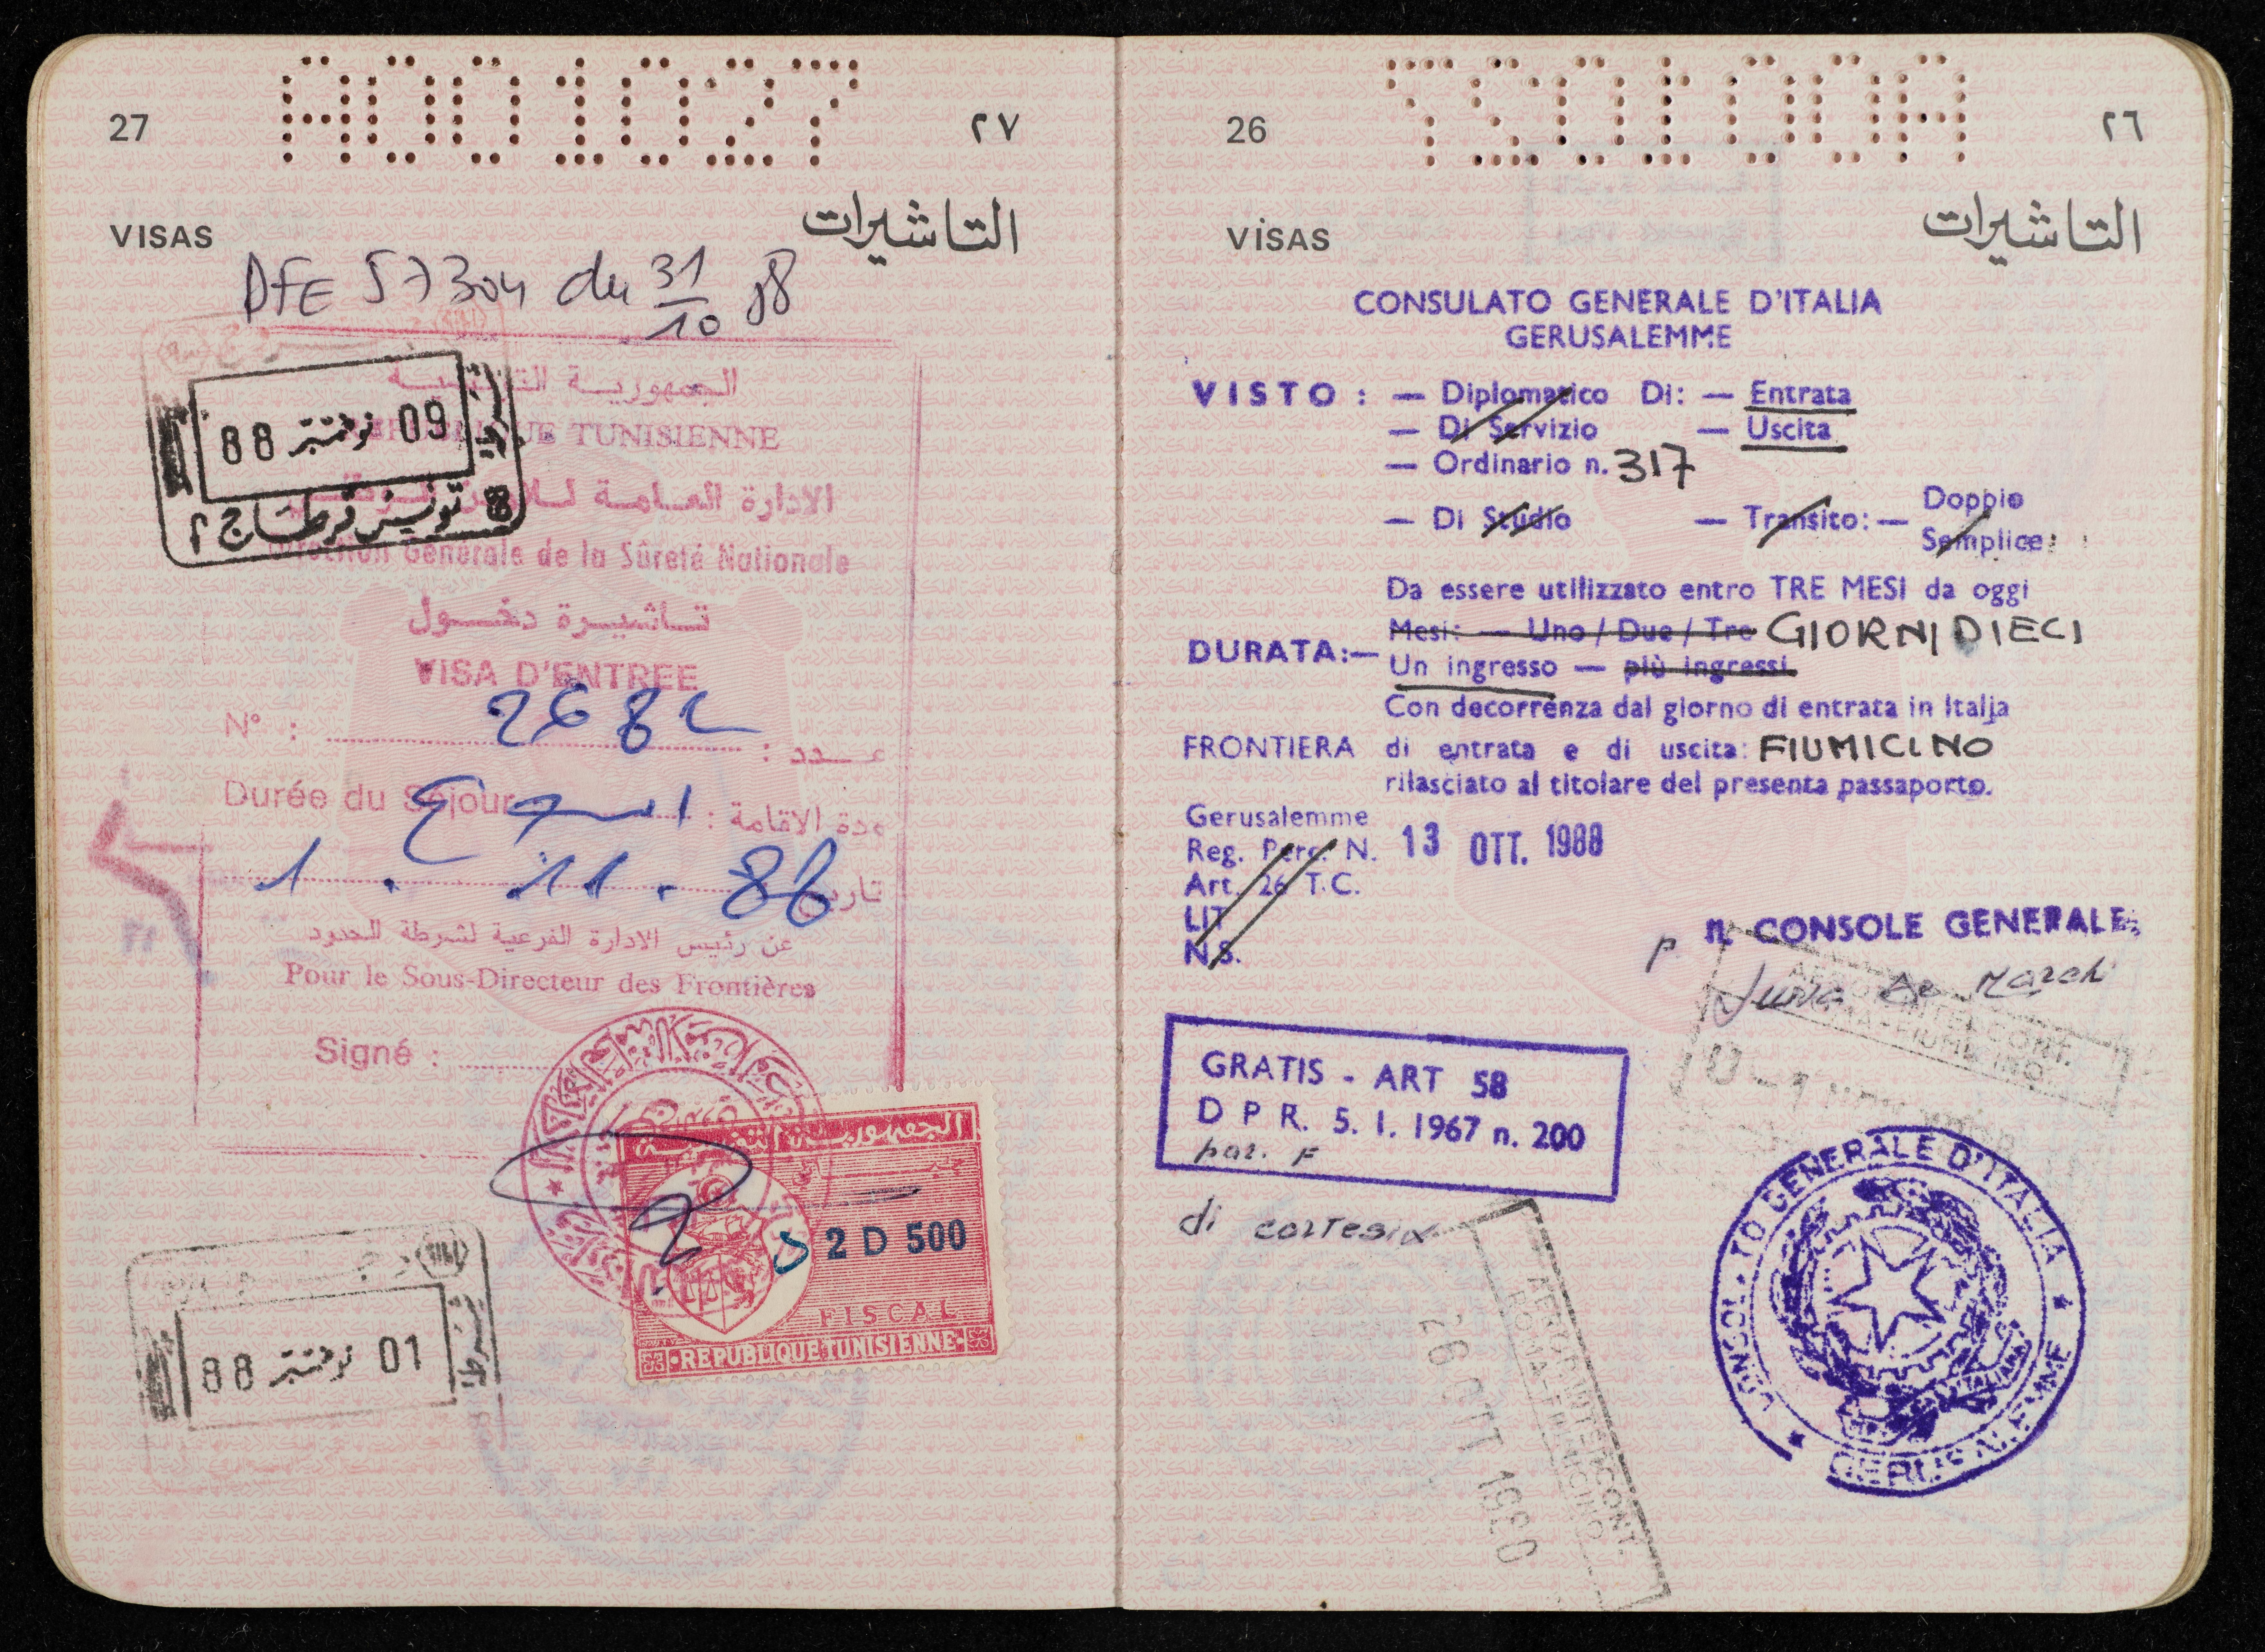 A001027
27
٢٧
VISAS
التاشيرات
DFE 57304 du 31/10 88
الجمهورية التونسية
REPUBLIQUE TUNISIENNE
09 نوفمبر 88
تونس قرطاج ٢
الادارة العامة للامن الوطني
Direction Générale de la Sûreté Nationale
تاشيرة دخول
VISA D'ENTREE
N° : 2682 عدد :
Durée du Séjour اسبوع مدة الاقامة :
1 . 11 . 88 تاريخ
عن رئيس الادارة الفرعية لشرطة الحدود
Pour le Sous-Directeur des Frontières
Signé :
الجمهورية التونسية
2 D 500
FISCAL
REPUBLIQUE TUNISIENNE
01 نوفمبر 88
شرطة
A001027
26
٢٦
VISAS
التاشيرات
CONSULATO GENERALE D'ITALIA
GERUSALEMME
VISTO : — Diplomatico Di: — Entrata
— Di Servizio — Uscita
— Ordinario n. 317
— Di Studio — Transito: — Doppio
Semplice
Da essere utilizzato entro TRE MESI da oggi
Mesi: — Uno / Due / Tre GIORNI DIECI
DURATA:—
Un ingresso — più ingressi
Con decorrenza dal giorno di entrata in Italia
FRONTIERA di entrata e di uscita: FIUMICINO
rilasciato al titolare del presenta passaporto.
Gerusalemme
13 OTT. 1988
Reg. Perc. N.
Art. 26 T.C.
LIT
N.S.
p. IL CONSOLE GENERALE
AEROP. INTERCONT.
ROMA-FIUMICINO
GRATIS - ART 58
D P R. 5. 1. 1967 n. 200
par. F
di cortesia
CONSOLATO GENERALE D'ITALIA
GERUSALEMME
AEROP. INTERCONT.
ROMA-FIUMICINO
26 OTT 1988